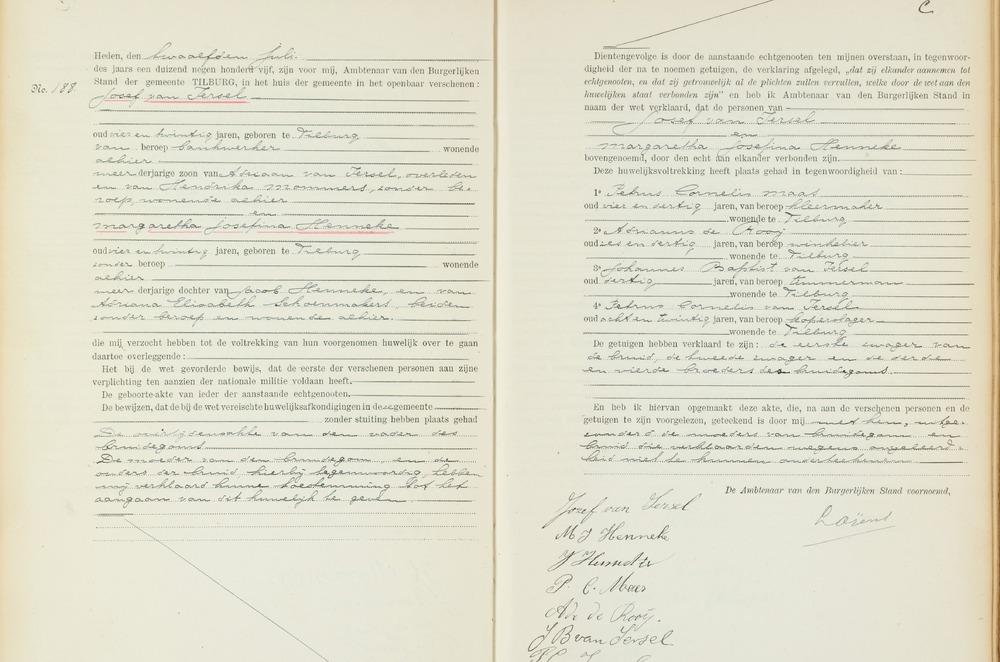 Heden, den twaalfden Juli
des jaars een duizend negen honderd vijf, zijn voor mij, Ambtenaar van den Burgerlijken
Stand der gemeente TILBURG, in het huis der gemeente in het openbaar verschenen:
No. 188.
Josef van Iersel
oud vier en twintig jaren, geboren te Tilburg
van beroep bankwerker wonende
alhier
meerderjarige zoon van Adriaan van Iersel, overleden
en van Hendrika Mommers, zonder be-
roep, wonende alhier
en
Margaretha Josefina Henneke
oud vier en twintig jaren, geboren te Tilburg
zonder beroep wonende
alhier
meerderjarige dochter van Jacob Henneke, en van
Adriana Elisabeth Schoenmakers, beiden
zonder beroep en wonende alhier.
die mij verzocht hebben tot de voltrekking van hun voorgenomen huwelijk over te gaan
daartoe overleggende:
Het bij de wet gevorderde bewijs, dat de eerste der verschenen personen aan zijne
verplichting ten aanzien der nationale militie voldaan heeft.
De geboorteakte van ieder der aanstaande echtgenooten.
De bewijzen, dat de bij de wet vereischte huwelijksafkondigingen in deze gemeente
zonder stuiting hebben plaats gehad
De overlijdensakte van den vader des
bruidegoms.
De moeder van den bruidegom en de
ouders der bruid hierbij tegenwoordig, hebben
mij verklaard hunne toestemming tot het
aangaan van dit huwelijk te geven.
C
Dientengevolge is door de aanstaande echtgenooten ten mijnen overstaan, in tegenwoor-
digheid der na te noemen getuigen, de verklaring afgelegd, „dat zij elkander aannemen tot
echtgenooten, en dat zij getrouwelijk al de plichten zullen vervullen, welke door de wet aan den
huwelijken staat verbonden zijn" en heb ik Ambtenaar van den Burgerlijken Stand in
naam der wet verklaard, dat de personen van
Josef van Iersel
en
Margaretha Josefina Henneke
bovengenoemd, door den echt aan elkander verbonden zijn.
Deze huwelijksvoltrekking heeft plaats gehad in tegenwoordigheid van:
1e Petrus Cornelis Maas
oud vier en dertig jaren, van beroep kleermaker
wonende te Tilburg
2e Adrianus de Rooij
oud zes en dertig jaren, van beroep winkelier
wonende te Tilburg
3e Johannes Baptist van Iersel
oud dertig jaren, van beroep timmerman
wonende te Tilburg
4e Petrus Cornelis van Iersel
oud acht en twintig jaren, van beroep koperslager
wonende te Tilburg
De getuigen hebben verklaard te zijn: de eerste zwager van
de bruid, de tweede zwager en de derde
en vierde broeders des bruidegoms.
En heb ik hiervan opgemaakt deze akte, die, na aan de verschenen personen en de
getuigen te zijn voorgelezen, geteekend is door mij met hen, uitge-
zonderd de moeders van bruidegom en
bruid die verklaarden wegens ongeleerd-
heid niet te kunnen onderteekenen
De Ambtenaar van den Burgerlijken Stand voornoemd,
Jozef van Iersel
M J Henneke
P. C. Maas
Adr de Rooij.
J B van Iersel